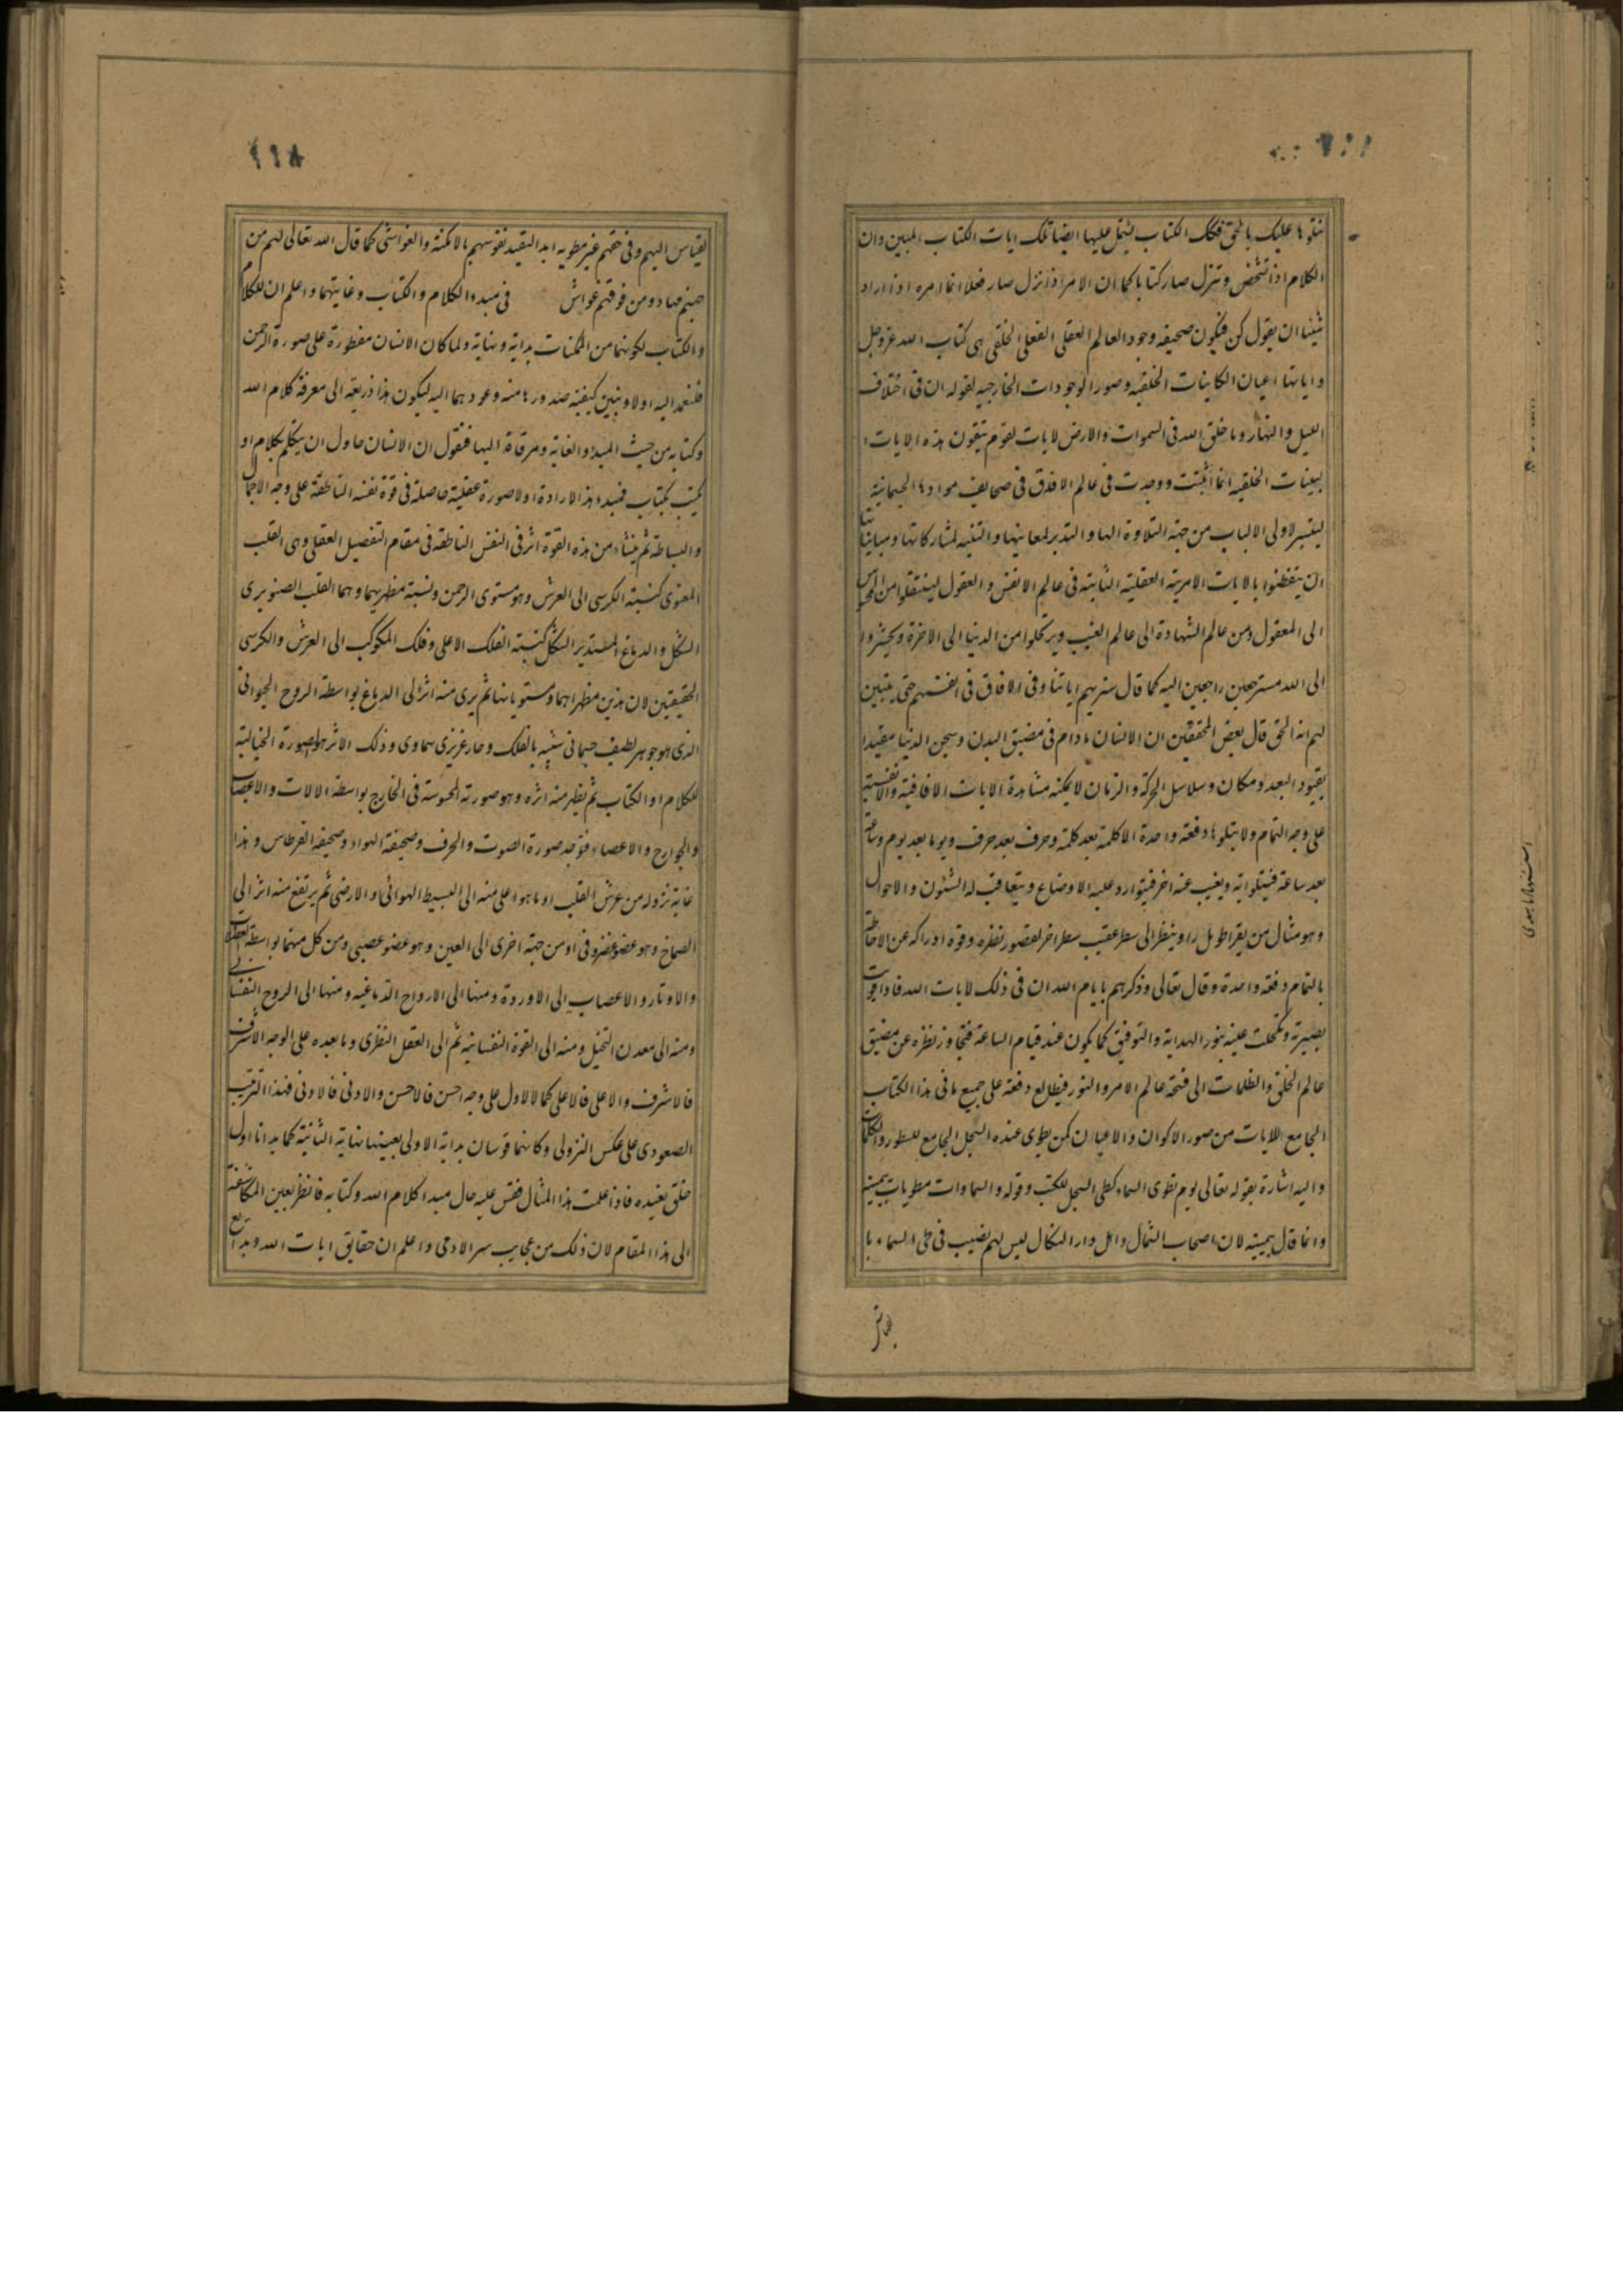 نتلوها عليك بالحق فتلك الكتاب يشتمل عليها ايضا تلك ايات الكتاب المبين وان
الكلام اذا تشخص وتنزل صار كتابا كما ان الامر اذا نزل صار فعلا انما امره اذا اراد
شيئا ان يقول كن فيكون صحيفه وجود العالم العقلى الفعلى الخلقى هى كتاب الله عز وجل
واياتها اعيان الكاينات الخلقيه وصور الموجودات الخارجيه لقوله ان فى اختلاف
الليل والنهار وما خلق الله فى السموات والارض لايات لقوم يتقون هذه الايات
البينات الخلقيه انما اثبتت ووجدت فى عالم الافاق فى صحايف موادها الجسمانية
ليتيسر لاولى الالباب من جهة التلاوة لها والتدبر لمعانيها والتنبه لمشاركاتها ومبايناتها
ان يتفطنوا بالايات الامرية العقلية الثابتة فى عالم الانفس والعقول لينتقلوا من المحسوس
الى المعقول ومن عالم الشهادة الى عالم الغيب ويرتحلوا من الدنيا الى الاخرة ويحشروا
الى الله مسترجعين راجعين اليه كما قال سنريهم اياتنا فى الافاق وفى انفسهم حتى يتبين
لهم انه الحق قال بعض المحققين ان الانسان مادام فى مضيق البدن وسجن الدنيا مقيدا
بقيود البعد ومكان وسلاسل الحركة والزمان لا يمكنه مشاهدة الايات الافاقية والانفسية
على وجه التمام ولا يتلوها دفعة واحدة الا كلمة بعد كلمة وحرف بعد حرف ويوما بعد يوم وساعة
بعد ساعة فيتلو اية ويغيب عنه اخر فيتوارد عليه الاوضاع ويتعاقب له الشئون والاحوال
وهو مثال من يقرا طومارا وينظر الى سطر عقيب سطر اخر لقصور نظره وقوة ادراكه عن الاحاطة
بالتمام دفعة واحدة وقال تعالى وذكرهم بايام الله ان فى ذلك لايات الله فاذا قويت
بصيرته وتكحلت عينه بنور الهداية والتوفيق كما يكون عند قيام الساعة فتجاوز نظره عن مضيق
عالم الخلق والظلمات الى فسحة عالم الامر والنور فيطالع دفعة على جميع ما فى هذا الكتاب
الجامع للايات من صور الاكوان والاعيان كمن يطوى عنده السجل الجامع للسطور والكلمات
واليه اشارة بقوله تعالى يوم نطوى السماء كطى السجل للكتب وقوله والسماوات مطويات بيمينه
وانما قال بيمينه لان اصحاب الشمال واهل دار النكال ليس لهم نصيب فى طى السماء با
١١٨
لقياس اليهم وفى حقهم غير مطويه ابدا لتقيد نفوسهم بالامكنة والغواشى كما قال الله تعالى لهم من
جهنم مهاد ومن فوقهم غواش فى مبدء الكلام والكتاب وغايتهما واعلم ان للكلام
والكتاب لكونهما من الممكنات بداية ونهاية ولما كان الانسان مفطورة على صورة الرحمن
فلنعمد اليه اولا ونبين كيفية صدورها منه وعودهما اليه ليكون هذا ذريعة الى معرفة كلام الله
وكتابه من حيث المبدء والغاية ومرقاة اليها فنقول ان الانسان حاول ان يتكلم بكلام او
يكتب بكتاب فمبدء هذا الارادة اولا صورة عقلية حاصلة فى قوة نفسه الناطقة على وجه الاجمال
والبساطة ثم ينشاء من هذه القوة اثر فى النفس الناطقه فى مقام التفصيل العقلى وهى القلب
المعنوى كنسبة الكرسى الى العرش وهو مستوى الرحمن ونسبة مظهريهما وهما القلب الصنوبرى
الشكل والدماغ المستدير الشكل كنسبة الفلك الاعلى وفلك الكوكب الى العرش والكرسى
الحقيقيين لان هذين مظهراهما ومستوياهما ثم يرى منه اثر الى الدماغ بواسطة الروح الحيوانى
الذى هو جوهر لطيف جسمانى شبيه بالفلك وحار غريزى سماوى وذلك الاثر هو الصورة الخيالية
للكلام او الكتاب ثم يظهر منه اثره وهو صورته المحسوسة فى الخارج بواسطة الالات والاعصاب
والجوارح والاعضاء فتوجد صورة الصوت والحرف وصحيفة الهواء وصحيفه القرطاس وهذا
غاية نزوله من عرش القلب او ما هو اعلى منه الى البسيط الهوائى او الارضى ثم يرتفع منه اثر الى
الصماخ وهو عضو غضروفى او من جهة اخرى الى العين وهو عضو عصبى ومن كل منهما بواسطة العضلات
والاوتار والاعصاب الى الاوردة ومنها الى الارواح الدماغيه ومنها الى الروح النفسانى
ومنه الى معدن التخيل ومنه الى القوة النفسانيه ثم الى العقل النظرى وما بعده على الوجه الاشرف
فالاشرف والاعلى فالاعلى كما للاول على وجه احسن فالاحسن والادنى فالادنى فهذا الترتيب
الصعودى على عكس النزولى وكانهما قوسان بداية الاولى بعينها نهاية الثانية كما بدانا اول
خلق نعيده فاذا علمت هذا المثال فقس عليه حال مبدا كلام الله وكتابه فانظر بعين المكاشفة
الى هذا المقام لان ذلك من عجايب سر الادمى واعلم ان حقايق ايات الله وبدايع